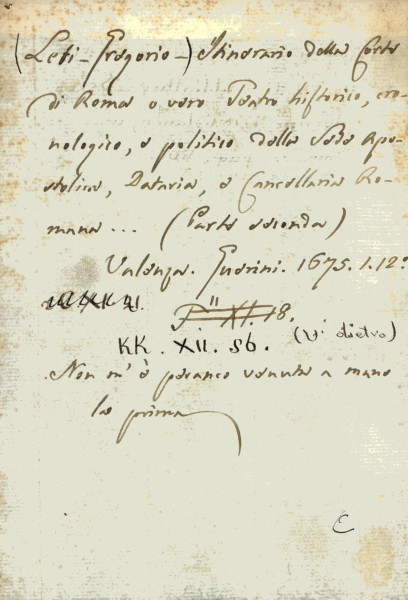 (Leti - Gregorio -) Itinerario della Corte
di Roma o vero Teatro historico, cro-
nologico, e politico della Sede Apo-
stolica, Dataria, e Cancellaria Ro-
mana ... (Parte seconda)
Valenza. Guerini. 1675. 1.12º
P. II. XI. 18.
(V: dietro)
KK. XII. 56.
Non m'è peranco venuta a mano
la prima
C